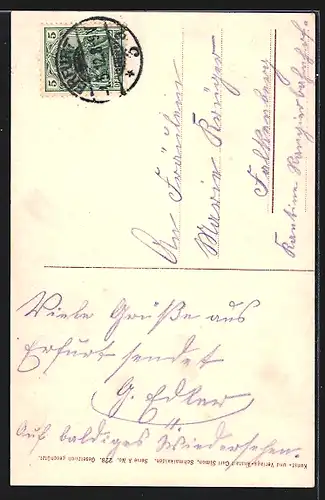 An Fräulein
Marie Krüger
Falkenberg
Kantine Rangierbahnhof
Viele Grüße aus
Erfurt sendet
G. Edler
Auf baldiges Wiedersehen.
Kunst- und Verlags-Anstalt Carl Simon, Schmalkalden. Serie A No. 228. Gesetzlich geschützt.
ERFURT
5
5